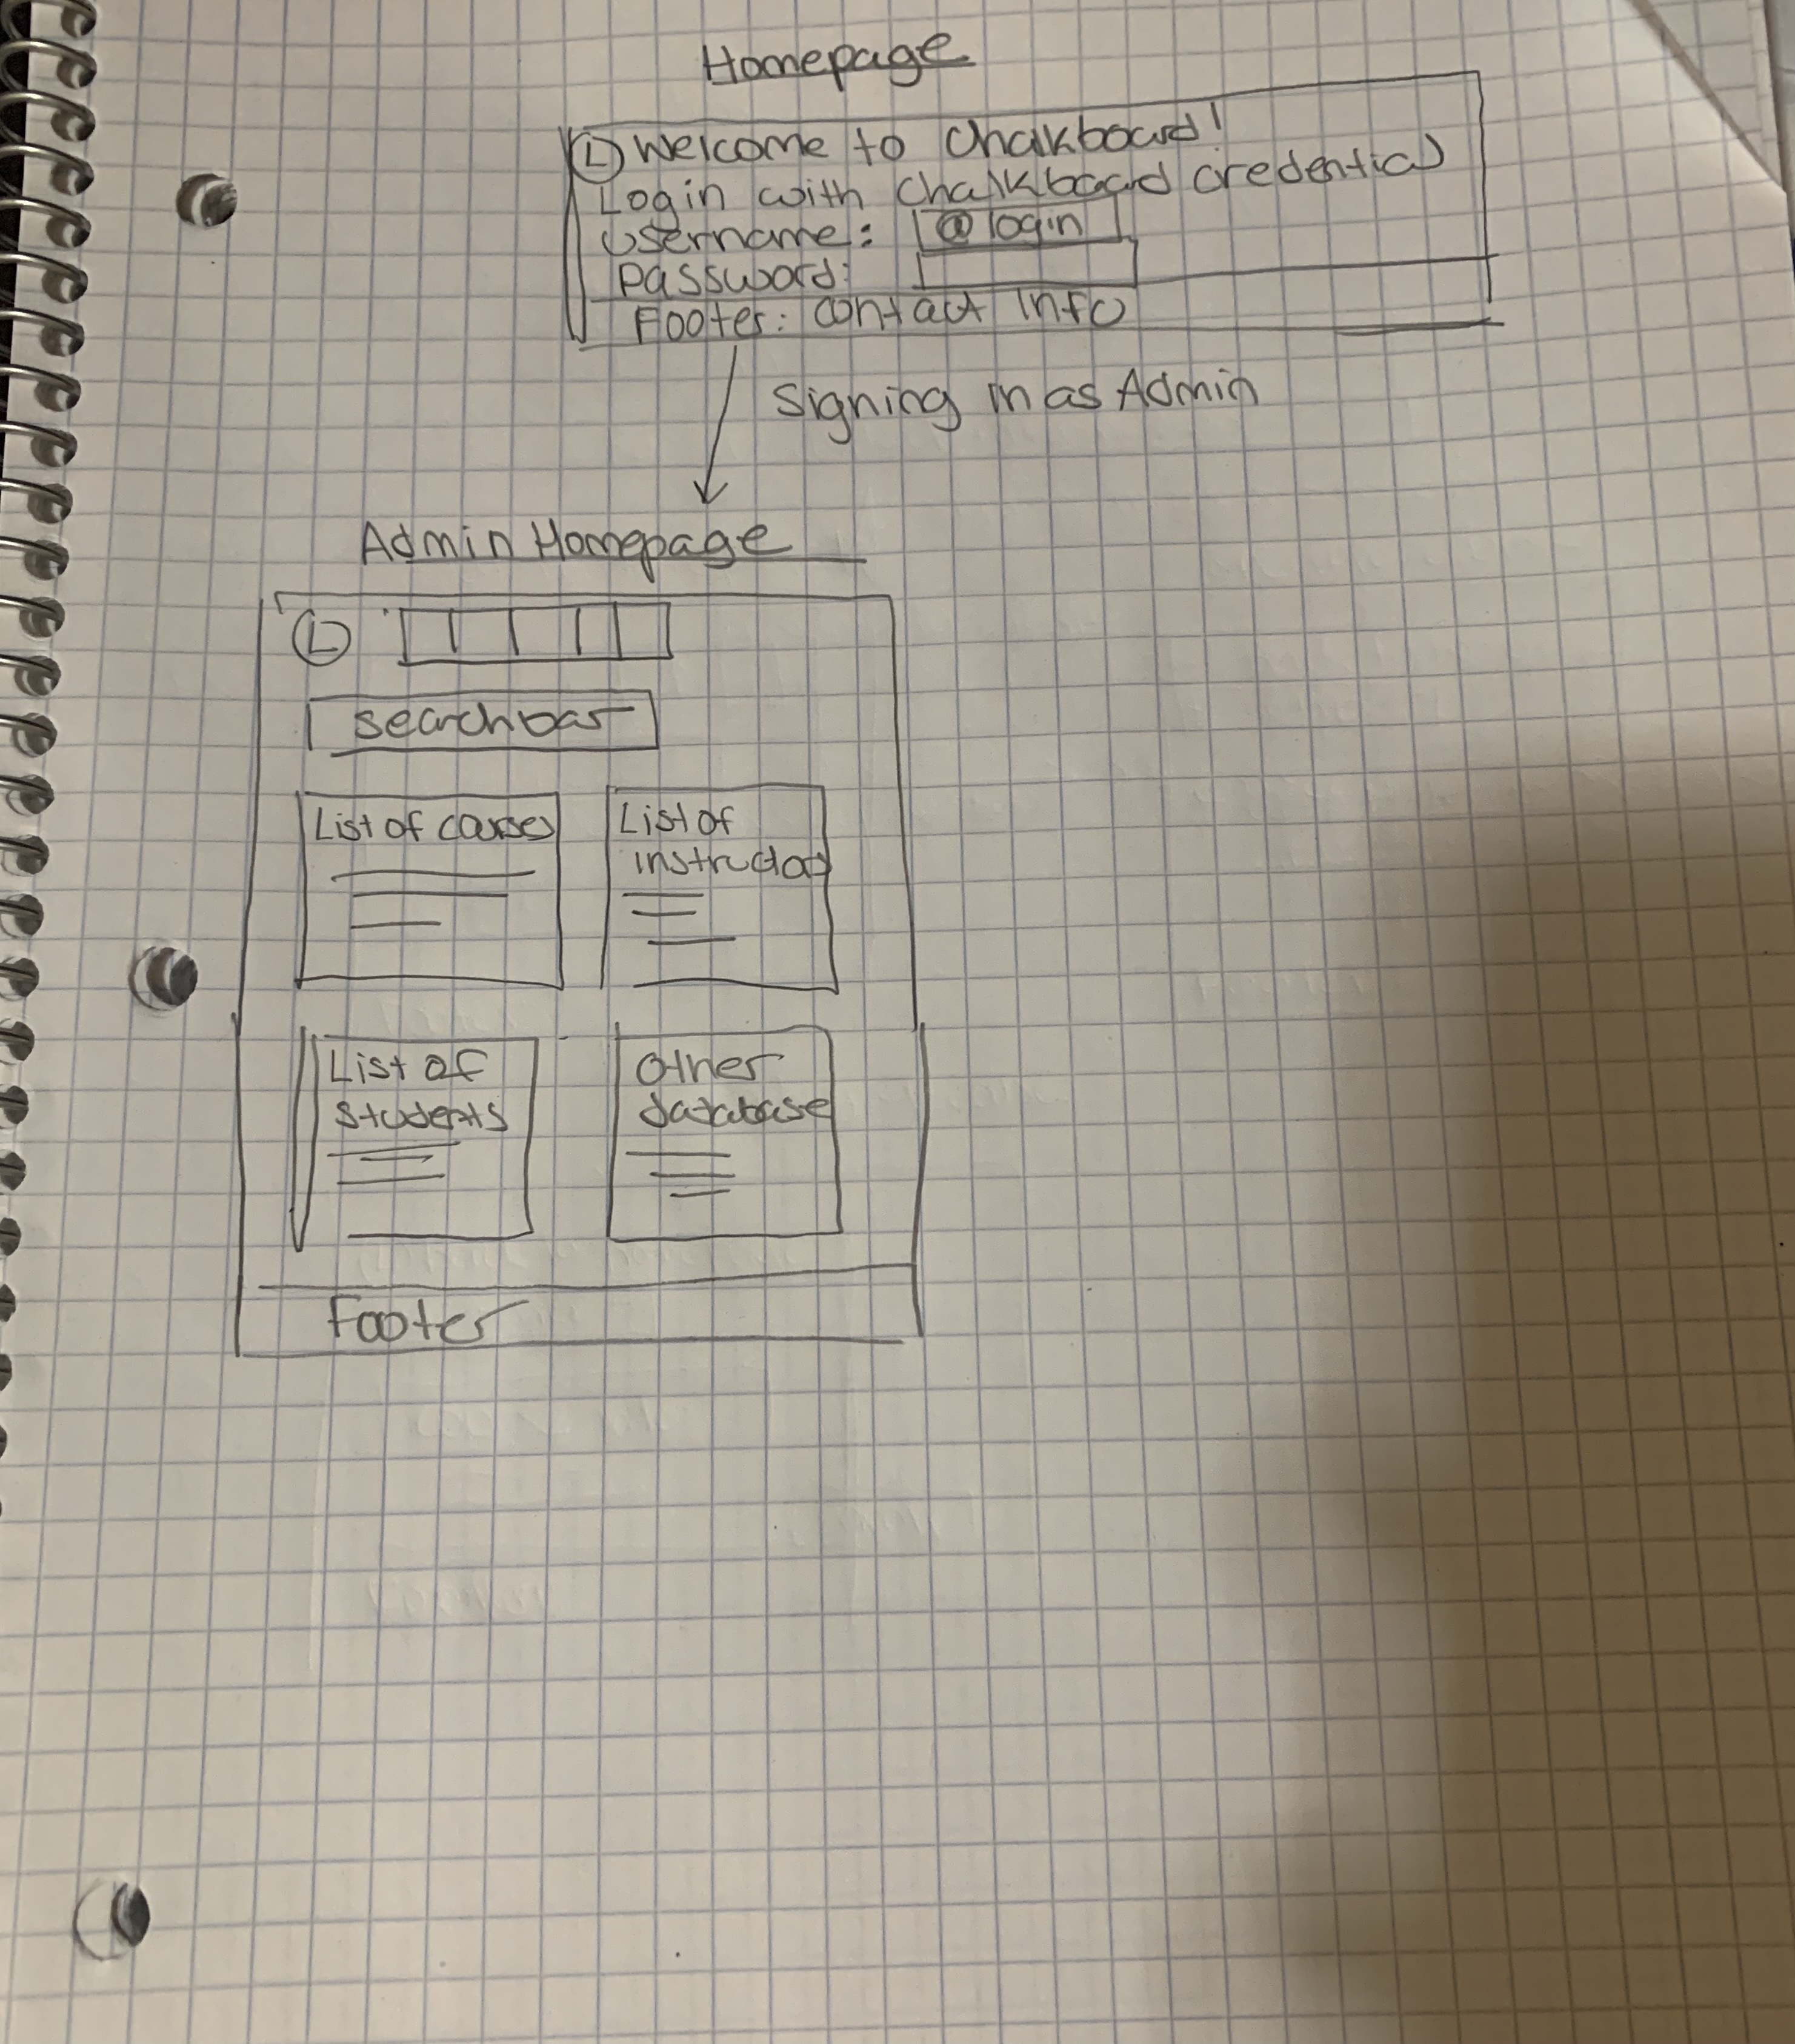 Homepage
L Welcome to Chalkboard!
Login with Chalkboard credential
Username: @login
Password:
Footer: contact info
Signing in as Admin
Admin Homepage
L
Searchbar
List of courses
List of instructors
List of students
Other database
Footer